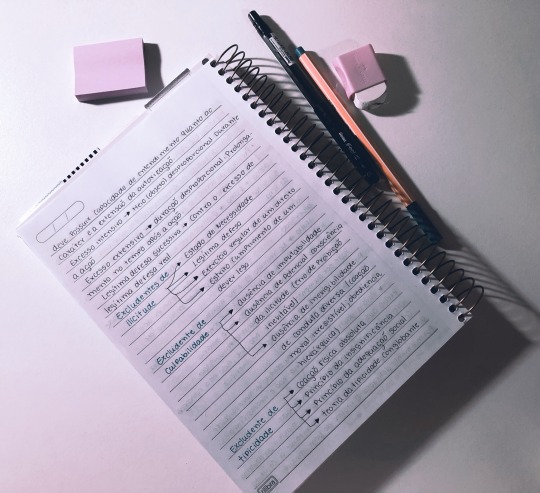 deve possuir capacidade de entendimento quanto ao
caráter e a extensão da autorização
Excesso intensivo → Meio (dano) desproporcional Durante
a ação
Excesso extensivo → duração desproporcional. Prolonga-
mento no tempo, após a ação
Legítima defesa sucessiva → Contra o excesso de
legítima defesa real
Excludentes de
Ilicitude
Estado de Necessidade
Legítima defesa
Exercício regular de um direito
Estrito cumprimento de um
dever legal
Excludente de
Culpabilidade
Ausência de imputabilidade
Ausência de potencial consciência
da ilicitude (erro de proibição
inevitável)
Ausência de inexigibilidade
de conduta diversa (coação
moral irresistível obediência
hierárquica)
Excludente de
tipicidade
Coação física absoluta
Princípio da insignificância
Princípio da adequação social
teoria da tipicidade conglobante
tilibra